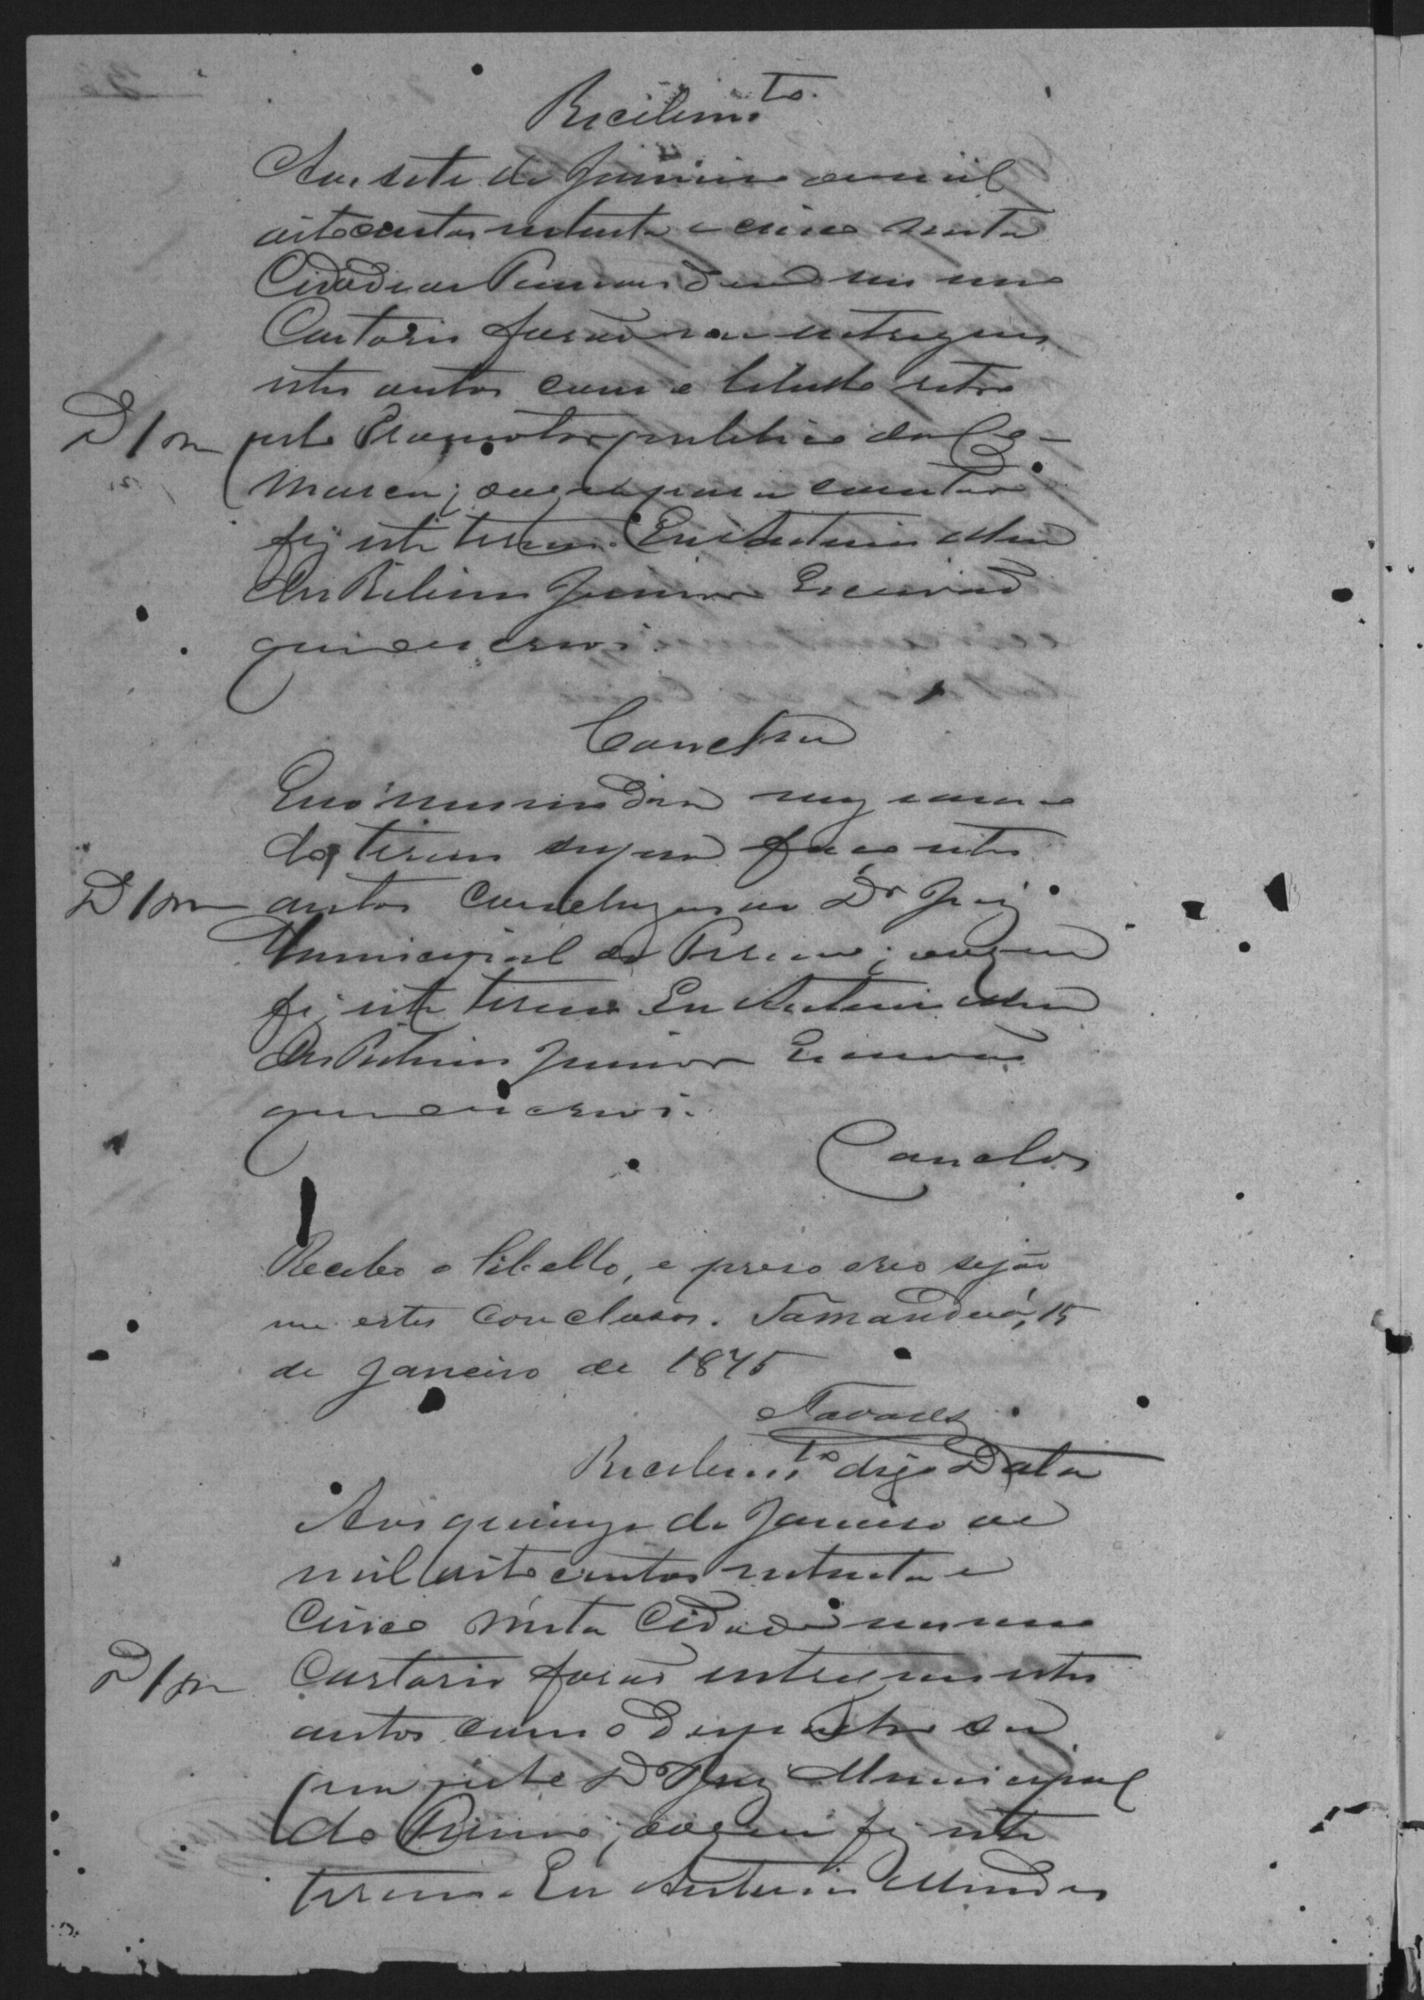 Recebim.to
Aos sete de Janeiro de mil
oito centos setenta e cinco nesta
Cidade de Tamanduá em meu
Cartorio forão me entregues
estes autos com o libello retro
D 1 m pelo Promotor publico da Co-
marca; do que para constar
fiz este termo. Eu Antonio Men
des Ribeiro Junior Escrivão
que escrevi.
Concl.am
E no mesmo dia mez e anno
do termo supra faço estes
D 1 m autos concluzos ao Dr Juiz
Municipal do Termo; do que
fiz este termo Eu Antonio Men
des Ribeiro Junior Escrivão
que escrevi.
Conclos
Recebo o libello, e preso o reo sejão
me estes conclusos. Tamanduá, 15
de Janeiro de 1875
Tavares
Recebim.to digo Data
Aos quinze de Janeiro de
mil oito centos setenta e
cinco nesta Cidade em meu
D 1 m Cartorio forão entregues estes
autos com o Despacho su
pra pelo Dr Juiz Municipal
do Termo; do que fiz este
termo. Eu Antonio Mendes